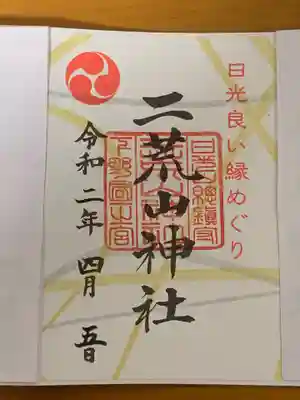 日光良い縁めぐり
二荒山神社
令和二年 四月 五日